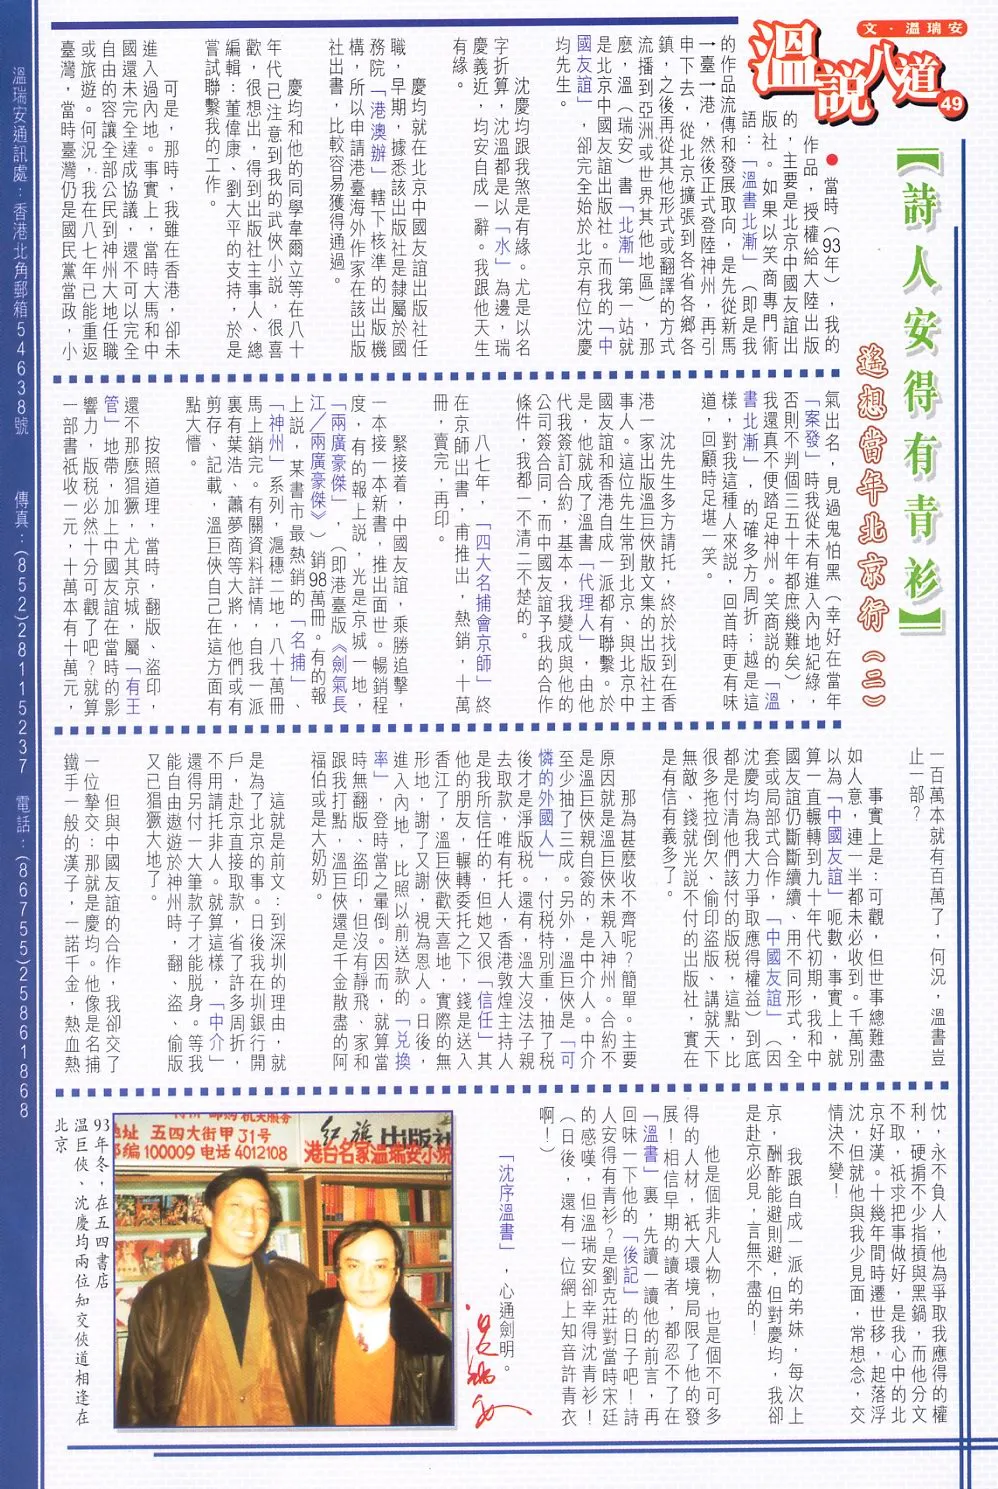 文．溫瑞安
溫說八道
49
【詩人安得有青衫】
遙想當年北京行（二）
●當時（93年），我的
作品，授權給大陸出版
的，主要是北京中國友誼出
版社。如果以笑商專門術
語：「溫書北漸」（即是我
的作品流傳和發展取向，是先從新馬
→臺→港，然後正式登陸神州，再引
申下去，從北京擴張到各省各鄉各
鎮，之後再從其他形式或翻譯的方式
流播到亞洲或世界其他地區），那
麼，溫（瑞安）書「北漸」第一站就
是北京中國友誼出版社。而我的「中
國友誼」，卻完全始於北京有位沈慶
均先生。
沈慶均跟我煞是有緣。尤是以名
字折算，沈溫都是以「水」為邊，瑞
慶義近，均安自成一辭。我跟他天生
有緣。
慶均就在北京中國友誼出版社任
職，早期，據悉該出版社是隸屬於國
務院「港澳辦」轄下核準的出版機
構，所以申請港臺海外作家在該出版
社出書，比較容易獲得通過。
慶均和他的同學韋爾立等在八十
年代已注意到我的武俠小說，很喜
歡，很想出，得到出版社主事人、總
編輯：董偉康、劉大平的支持，於是
嘗試聯繫我的工作。
可是，那時，我雖在香港，卻未
進入過內地。事實上，當時大馬和中
國還未完全達成協議，還不可以完全
自由的容讓全部公民到神州大地任職
或旅遊。何況，我在八七年已能重返
臺灣，當時臺灣仍是國民黨當政，小
氣出名，見過鬼怕黑（幸好在當年
「案發」時我從未有進入內地紀綠，
否則不判個三五十年都庶幾難矣），
我還真不便踏足神州。笑商説的「溫
書北漸」，的確多方周折；越是這
樣，對我這種人來說，回首時更有味
道，回顧時足堪一笑。
沈先生多方請托，終於找到在香
港一家出版溫巨俠散文集的出版社主
事人。這位先生常到北京、與北京中
國友誼和香港自成一派都有聯繫。於
是，他就成了溫書「代理人」，由他
代我簽訂合約，基本，我變成與他的
公司簽合同，而中國友誼予我的合作
條件，我都一不清二不楚的。
八七年，「四大名捕會京師」終
在京師出書，甫推出，熱銷，十萬
冊，賣完，再印。
緊接着，中國友誼，乘勝追擊，
一本接一本新書，推出面世。暢銷程
度，有的報上説，光是京城一地，
「兩廣豪傑」，（即港臺版《劍氣長
江／兩廣豪傑》）銷98萬冊。有的報
上説，某書市最熱銷的「名捕」、
「神州」系列，滬穗二地，八十萬冊
馬上銷完。有關資料詳情，自我一派
裏有葉浩、蕭夢商等大將，他們或有
剪存、記載，溫巨俠自己在這方面有
點大懵。
按照道理，當時，翻版、盜印，
還不那麼猖獗，尤其京城，屬「有王
管」地帶，加上中國友誼在當時的影
響力，版稅必然十分可觀了吧？就算
一部書祇收一元，十萬本有十萬元，
一百萬本就有百萬了，何況，溫書豈
止一部？
事實上是：可觀，但世事總難盡
如人意，連一半都未必收到。千萬別
以為「中國友誼」呃數，事實上，就
算一直輾轉到九十年代初期，我和中
國友誼仍斷斷續續、用不同形式，全
套或局部式合作，「中國友誼」（因
沈慶均為我大力爭取應得權益）到底
都是付清他們該付的版稅，這點，比
很多拖拉倒欠、偷印盜版、講就天下
無敵、錢就光説不付的出版社，實在
是有信有義多了。
那為甚麼收不齊呢？簡單。主要
原因就是溫巨俠未親入神州。合約不
是溫巨俠親自簽的，是中介人。中介
至少抽了三成。另外，溫巨俠是「可
憐的外國人」，付稅特別重，抽了稅
後才是淨版稅。還有，溫大沒法子親
去取款，唯有托人，香港敦煌主持人
是我所信任的，但她又很「信任」其
他的朋友，輾轉委托之下，錢是送入
香江了，溫巨俠歡天喜地，實際的無
形地，謝了又謝，視為恩人。日後，
進入內地，比照以前送款的「兌換
率」，登時當之暈倒。因而，就算當
時無翻版、盜印，但沒有靜飛、家和
跟我打點，溫巨俠還是千金散盡的阿
福伯或是大奶奶。
這就是前文：到深圳的理由，就
是為了北京的事。日後我在圳銀行開
戶，赴京直接取款，省了許多周折，
不用請托非人。就算這樣，「中介」
還得另付一大筆款子才能脫身。等我
能自由遨遊於神州時，翻、盜、偷版
又已猖獗大地了。
但與中國友誼的合作，我卻交了
一位摯交：那就是慶均。他像是名捕
鐵手一般的漢子，一諾千金，熱血熱
忱，永不負人，他為爭取我應得的權
利，硬捐不少指摃與黑鍋，而他分文
不取，祇求把事做好，是我心中的北
京好漢。十幾年間時遷世移，起落浮
沈，但就他與我少見面，常想念，交
情決不變！
我跟自成一派的弟妹，每次上
京，酬酢能避則避，但對慶均，我卻
是赴京必見，言無不盡的！
他是個非凡人物，也是個不可多
得的人材，祇大環境局限了他的發
展！相信早期的讀者，都忍不了在
「溫書」裏，先讀一讀他的前言，再
回味一下他的「後記」的日子吧！詩
人安得有青衫？是劉克莊對當時宋廷
的感嘆，但溫瑞安卻幸得沈青衫！
（日後，還有一位網上知音許青衣
啊！）
「沈序溫書」，心通劍明。
溫瑞安
地址 五四大街甲31号
邮编 100009 电话 4012108
红旗出版社
港台名家溫瑞安小
93年冬，在五四書店
溫巨俠、沈慶均兩位知交俠道相逢在
北京
溫瑞安通訊處：香港北角郵箱54638號 傳真：(852)28115237 電話：(86755)25861868